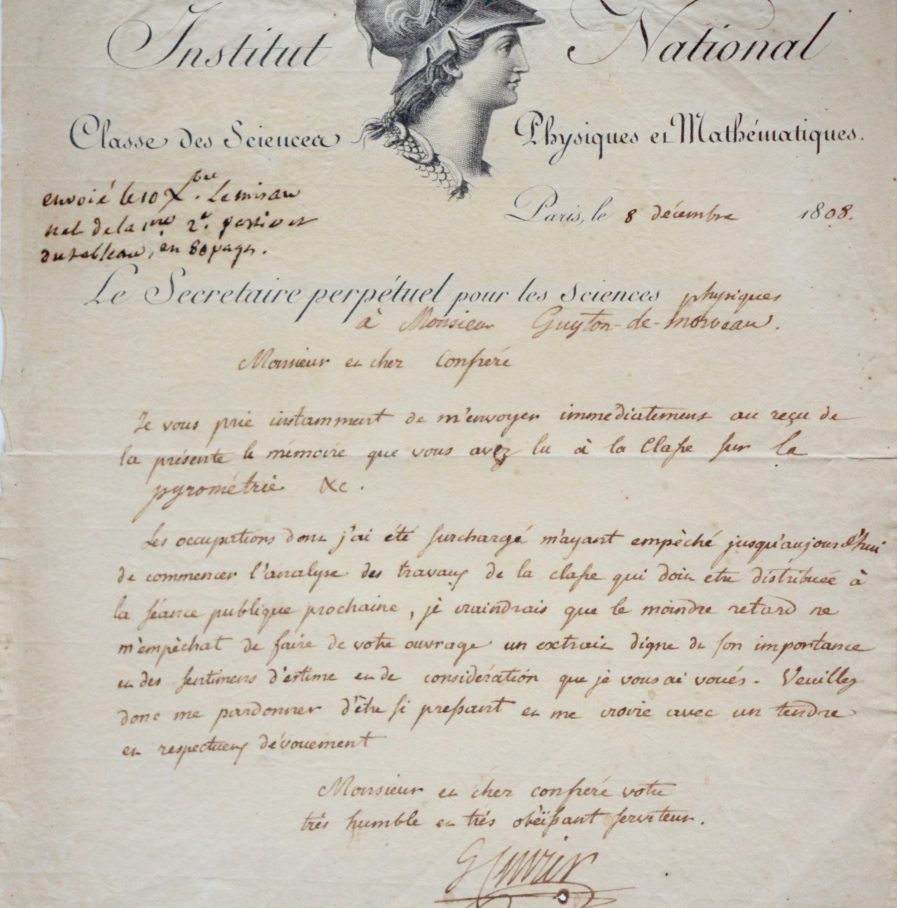 Institut National
Classe des Sciences Physiques et Mathématiques.
envoié le 10 Xbre. Le misau
net de la 1ere 2e. partie et
du tableau, en 80 pages.
Paris, le 8 décembre 1808.
Le Secretaire perpétuel pour les Sciences physiques
à Monsieur Guyton-de-morveau.
Monsieur et cher Confrére
Je vous prie instamment de m'envoyer immédiatement au reçu de
la présente le mémoire que vous avez lu à la Classe sur la
pyrométrie &c.
Les occupations dont j'ai été surchargé m'ayant empêché jusqu'aujourd'hui
de commencer l'analyse des travaux de la classe qui doit etre distribuée à
la séance publique prochaine, je craindrais que le moindre retard ne
m'empêchat de faire de votre ouvrage un extrait digne de son importance
et des sentimens d'estime et de considération que je vous ai voués. Veuillez
donc me pardonner d'être si pressant et me croire avec un tendre
et respectueux dévouement
Monsieur et cher confrére votre
très humble et trés obéissant serviteur.
G Cuvier